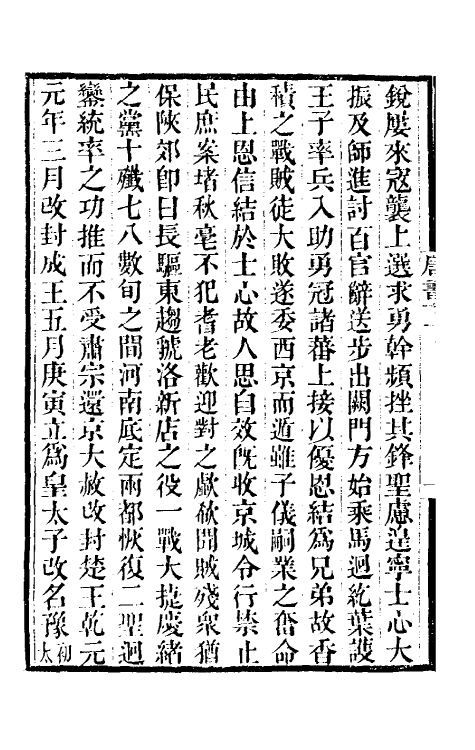 銳屢來寇襲上選求勇幹頻挫其鋒聖慮遑寧士心大
振及師進討百官辭送步出闕門方始乘馬迴紇葉護
王子率兵入助勇冠諸蕃上接以優恩結爲兄弟故香
積之戰賊徒大敗遂委西京而遁雖子儀嗣業之奮命
由上恩信結於士心故人思自效旣收京城令行禁止
民庶案堵秋毫不犯耆老歡迎對之歔欷聞賊殘衆猶
保陝郊卽日長驅東趨虢洛新店之役一戰大捷慶緒
之黨十殲七八數旬之間河南底定兩都恢復二聖迴
鑾統率之功推而不受肅宗還京大赦改封楚王乾元
元年三月改封成王五月庚寅立爲皇太子改名豫初太